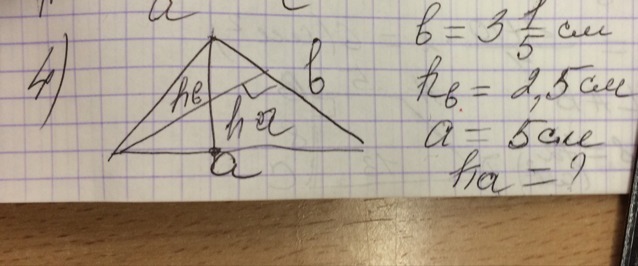 4)
hв
hа
в
а
в = 3 1/5 см
hв = 2,5 см
а = 5 см
hа = ?